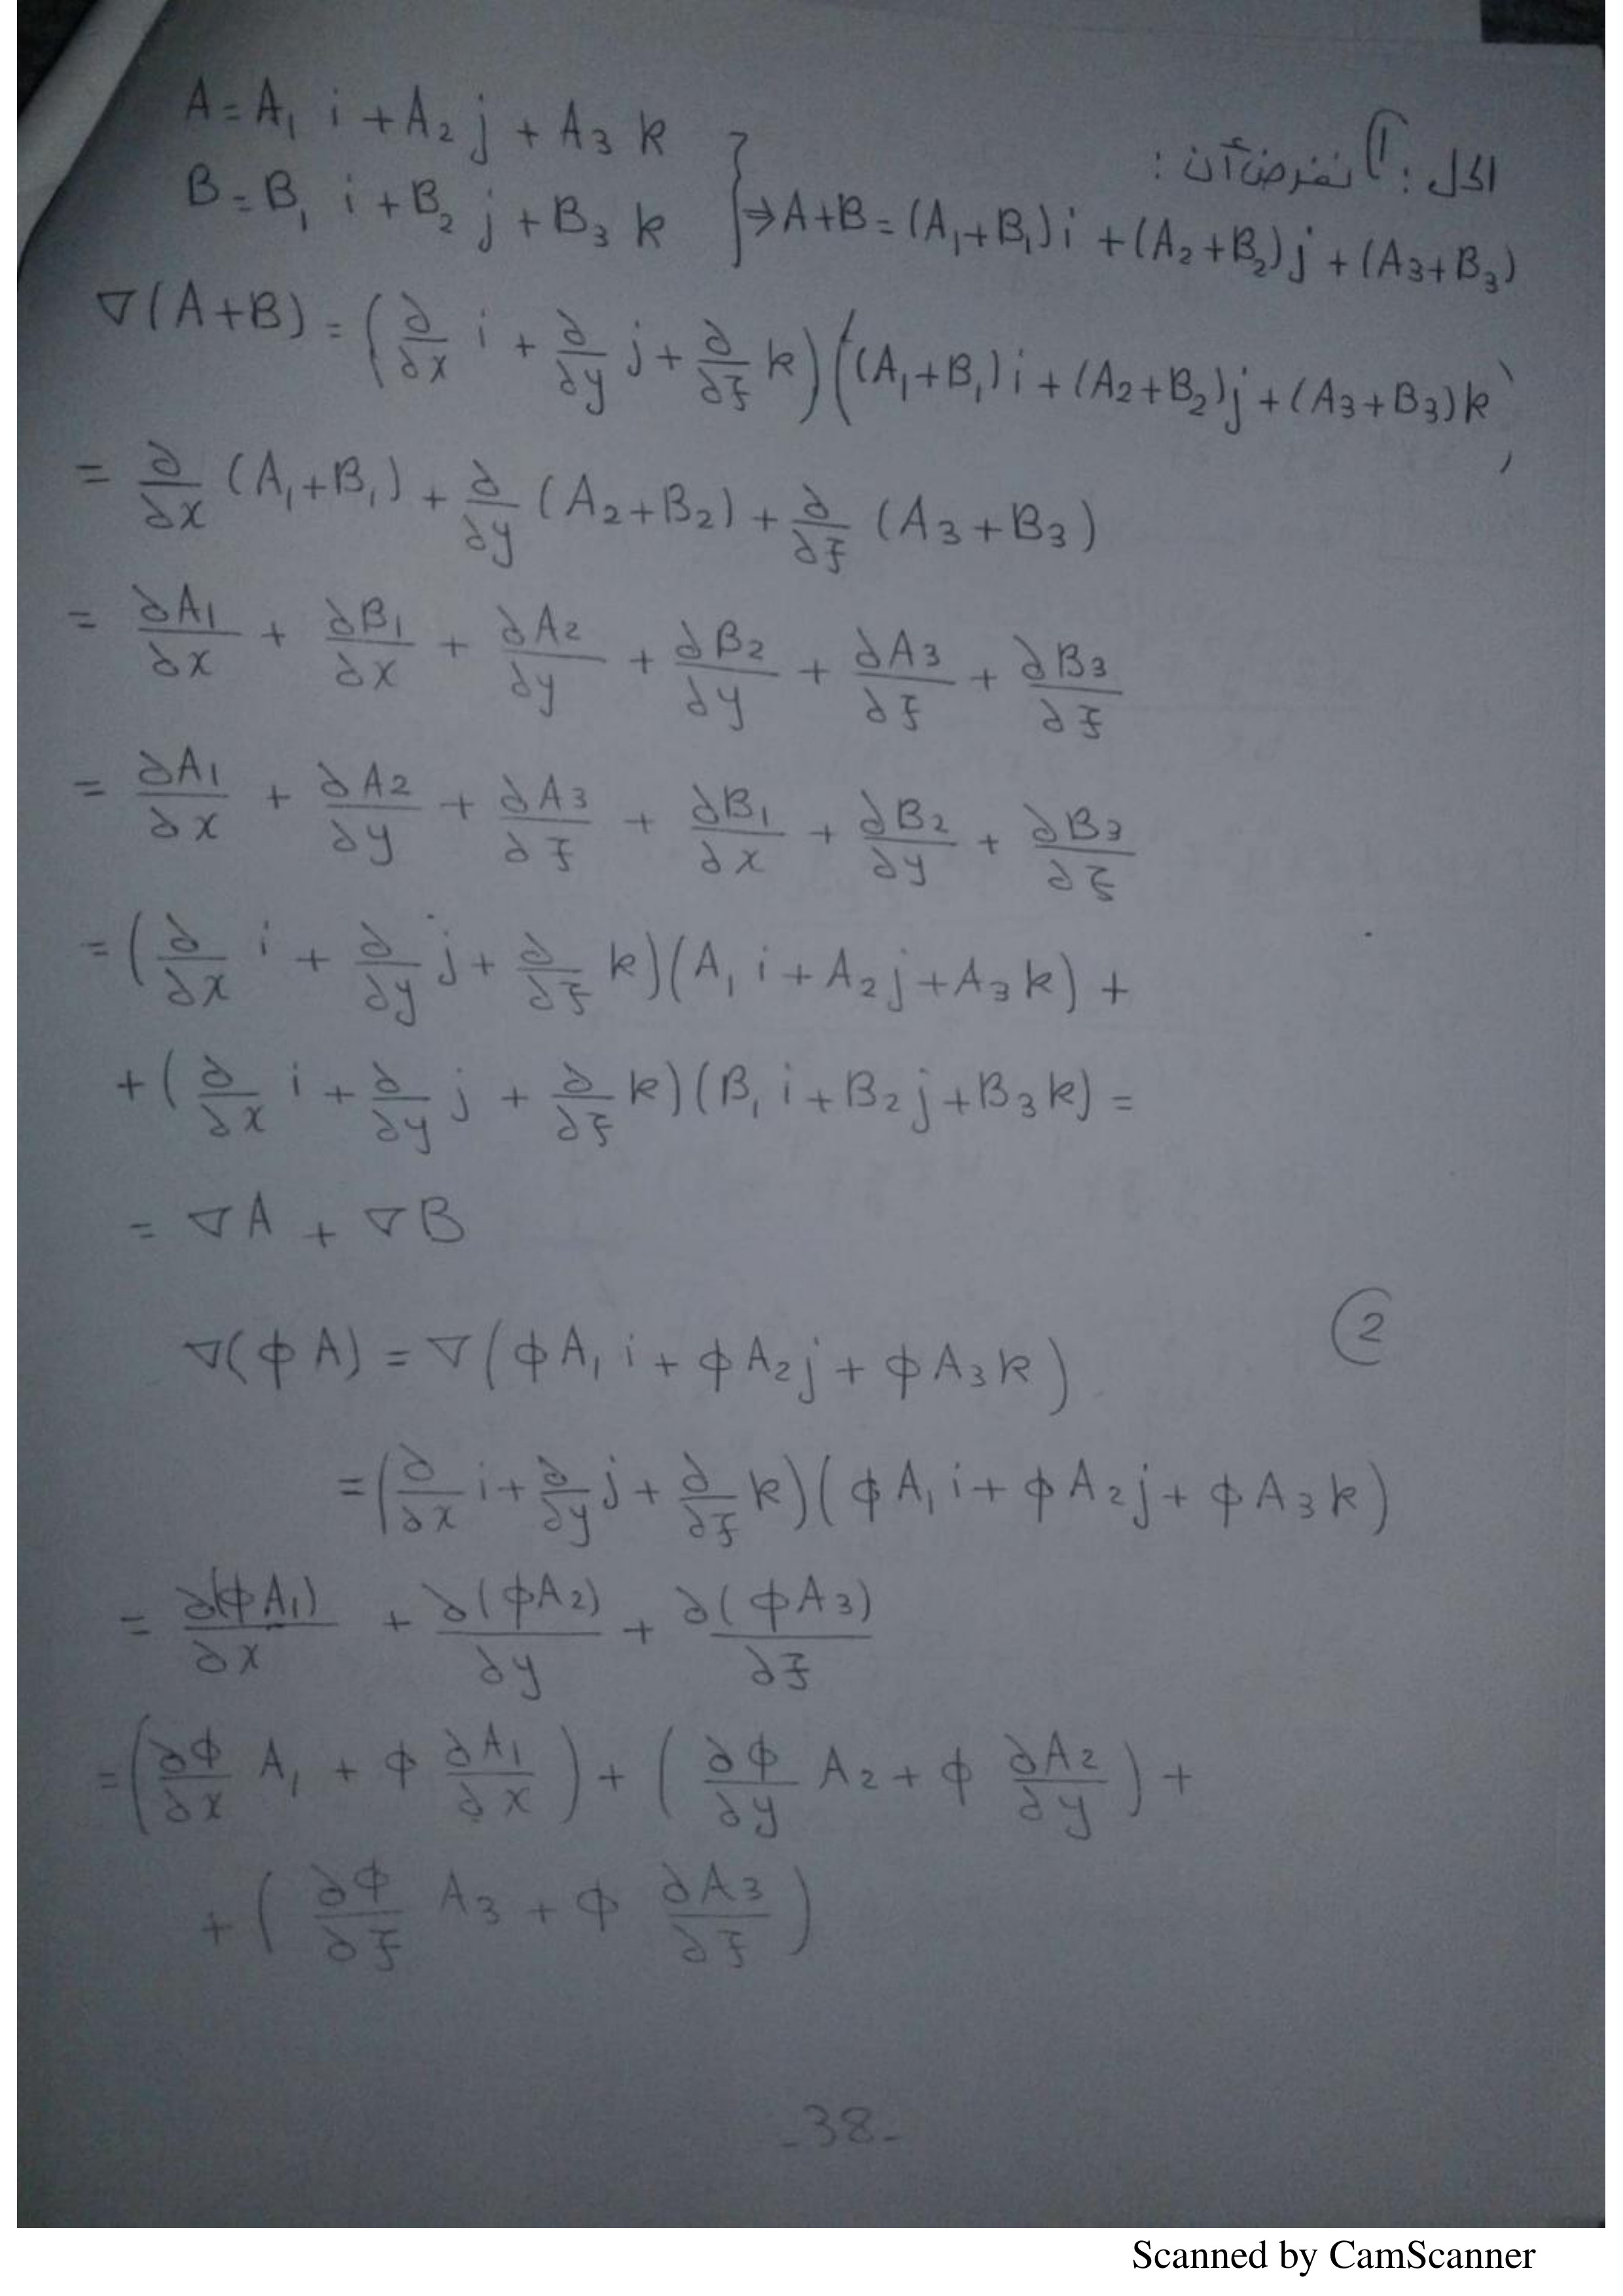 الحل: 1) نفرض أن:
A = A₁ i + A₂ j + A₃ k
B = B₁ i + B₂ j + B₃ k } ⇒ A+B = (A₁+B₁)i + (A₂+B₂)j + (A₃+B₃)
∇(A+B) = (∂/∂x i + ∂/∂y j + ∂/∂z k)((A₁+B₁)i + (A₂+B₂)j + (A₃+B₃)k)
= ∂/∂x (A₁+B₁) + ∂/∂y (A₂+B₂) + ∂/∂z (A₃+B₃)
= ∂A₁/∂x + ∂B₁/∂x + ∂A₂/∂y + ∂B₂/∂y + ∂A₃/∂z + ∂B₃/∂z
= ∂A₁/∂x + ∂A₂/∂y + ∂A₃/∂z + ∂B₁/∂x + ∂B₂/∂y + ∂B₃/∂z
= (∂/∂x i + ∂/∂y j + ∂/∂z k)(A₁ i + A₂ j + A₃ k) +
+ (∂/∂x i + ∂/∂y j + ∂/∂z k)(B₁ i + B₂ j + B₃ k) =
= ∇A + ∇B
2
∇(ϕA) = ∇(ϕA₁ i + ϕA₂ j + ϕA₃ k)
= (∂/∂x i + ∂/∂y j + ∂/∂z k)(ϕA₁ i + ϕA₂ j + ϕA₃ k)
= ∂(ϕA₁)/∂x + ∂(ϕA₂)/∂y + ∂(ϕA₃)/∂z
= (∂ϕ/∂x A₁ + ϕ ∂A₁/∂x) + (∂ϕ/∂y A₂ + ϕ ∂A₂/∂y) +
+ (∂ϕ/∂z A₃ + ϕ ∂A₃/∂z)
-38-
Scanned by CamScanner